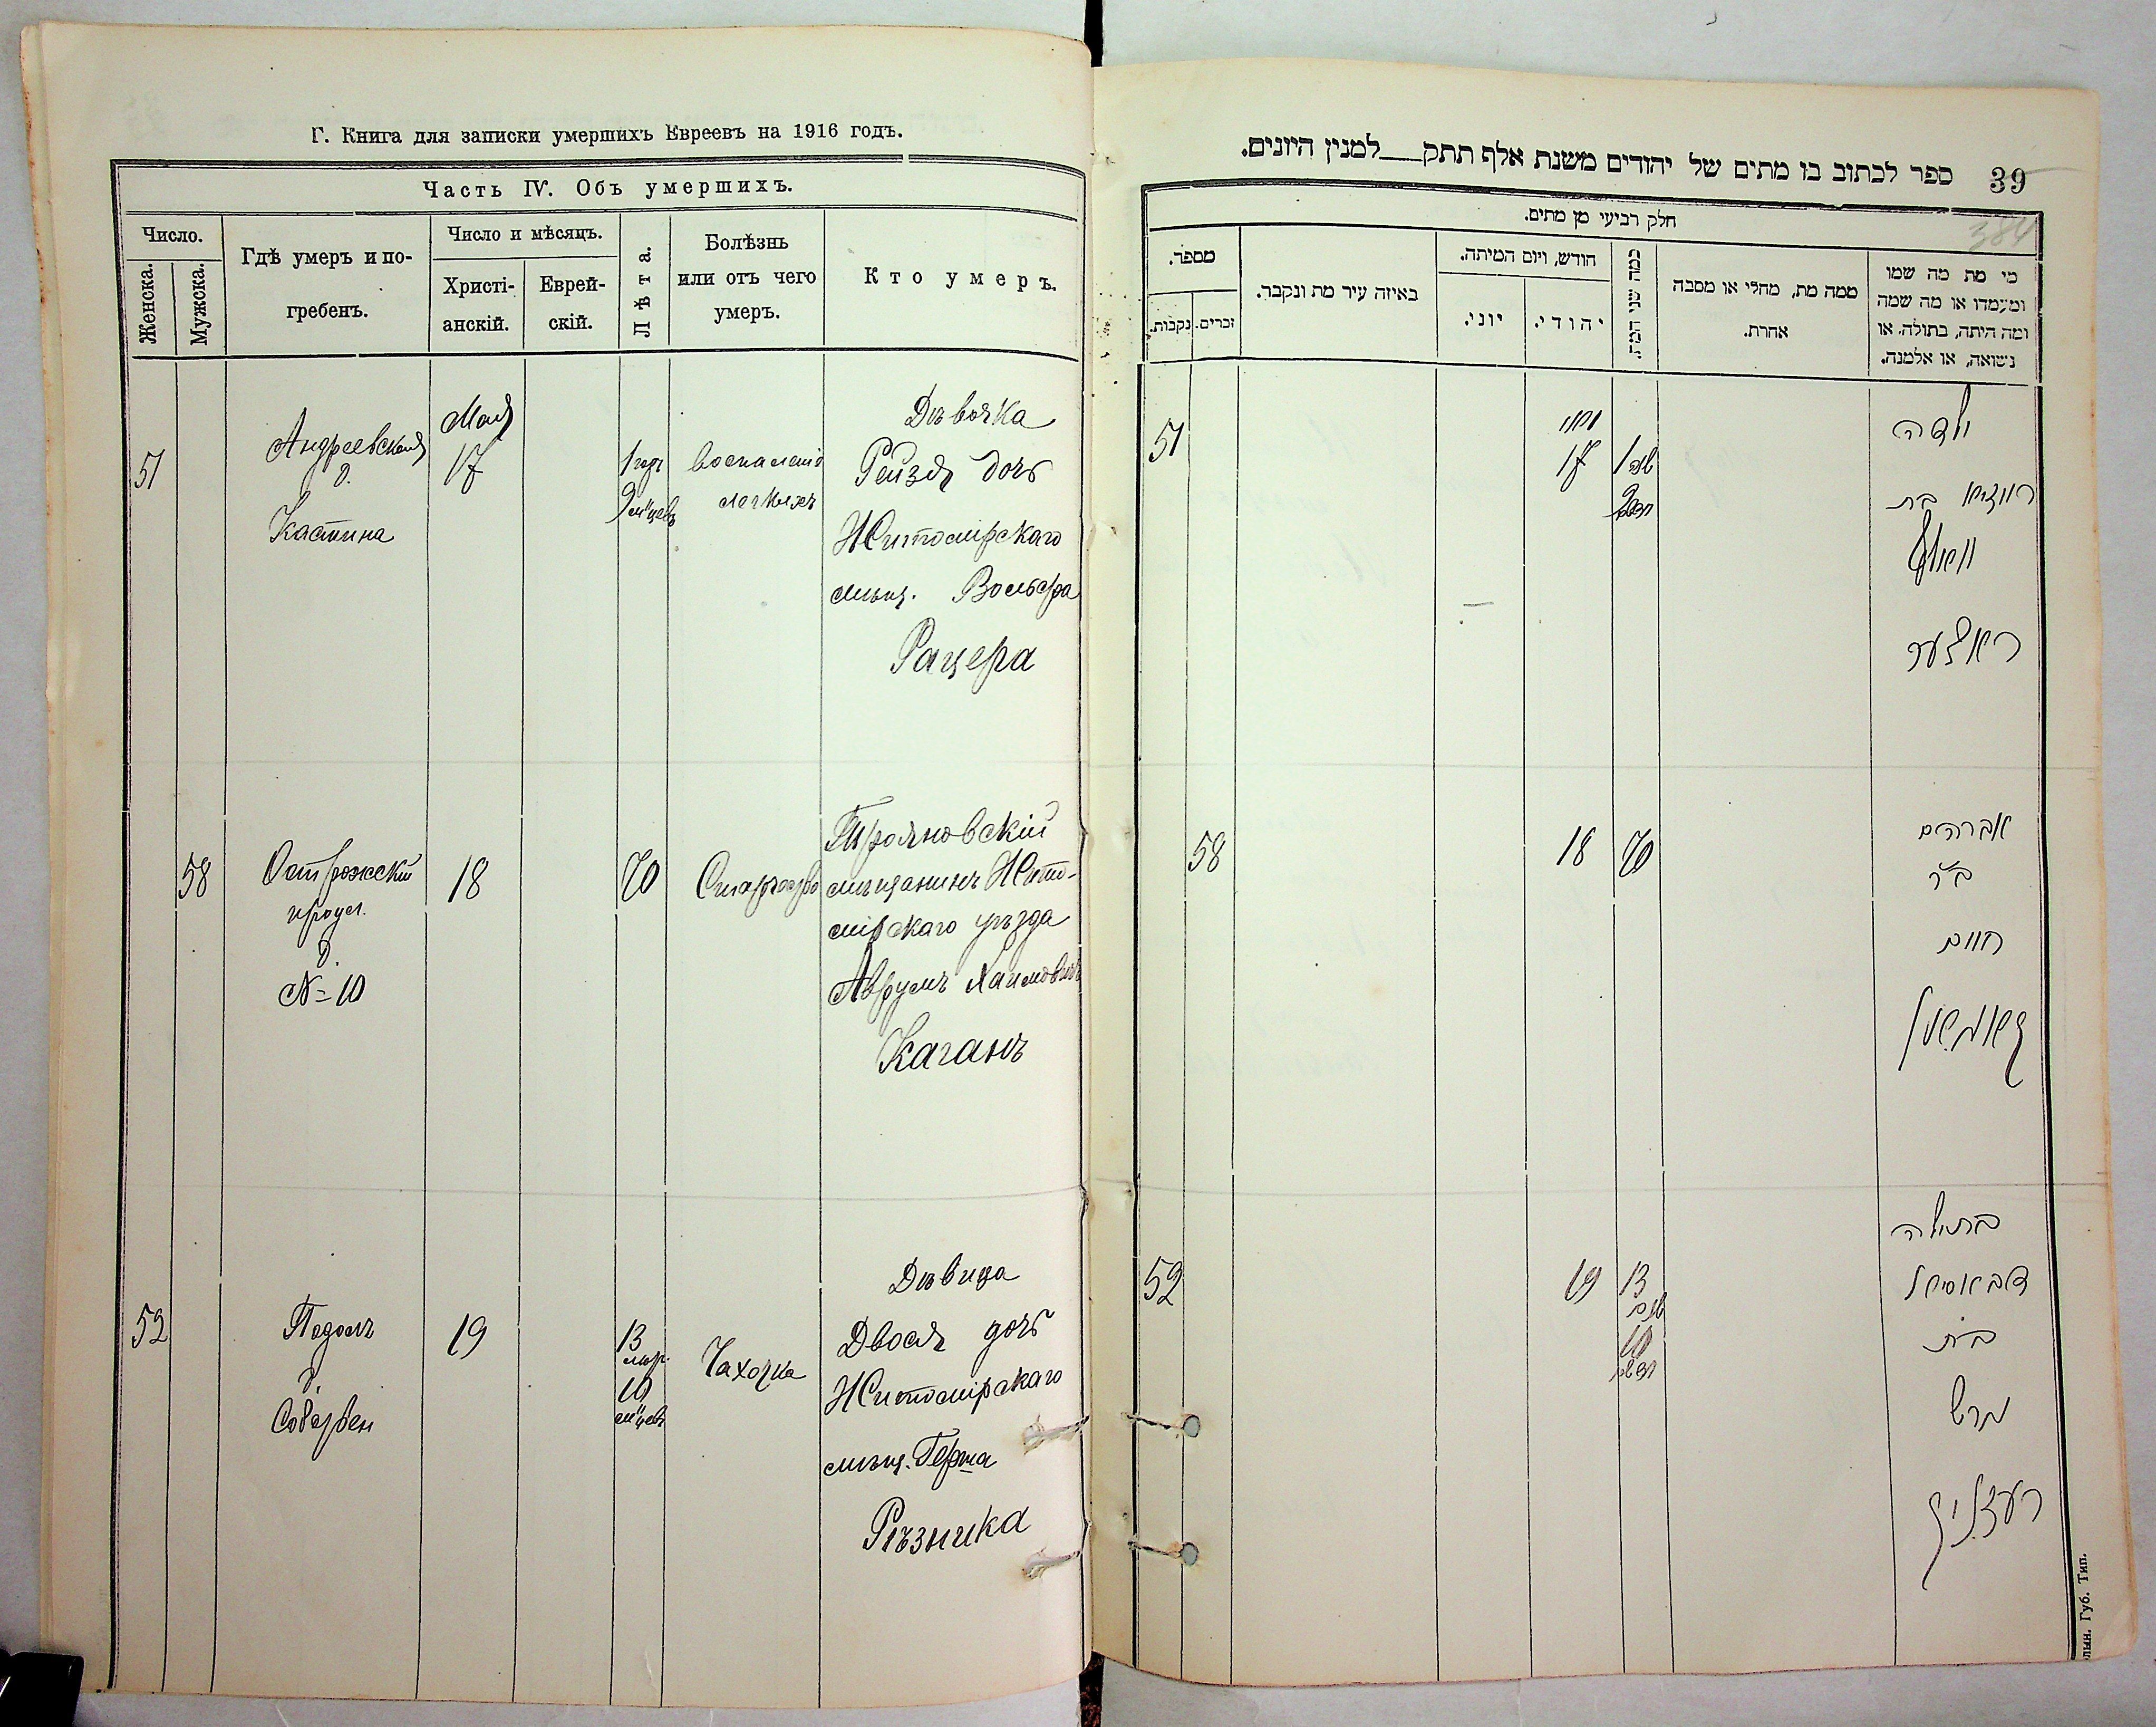 Г. Книга для записки умершихъ Евреевъ на 1916 годъ.
Часть IV. Объ умершихъ.
Число.
Женска.
Мужска.
Гдѣ умеръ и по-
гребенъ.
Число и мѣсяцъ.
Христі-
анскій.
Еврей-
скій.
Лѣта.
Болѣзнь
или отъ чего
умеръ.
Кто умеръ.
51
Андреевская
д.
Кастина
Мая
17
1 годъ
9 м-цевъ
воспаленіе
легкихъ
Дѣвочка
Рейзя дочь
Житомірскаго
мѣщ. Вольфа
Рацера
58
Острожскій
проул.
д.
№ 10
18
70
Трояновскій
мѣщанинъ Жито-
мірскаго уѣзда
Аврумъ Хаимовичъ
Каганъ
52
Подолъ
д.
19
13
10
м-цевъ
Чахотка
Дѣвица
Двося дочь
Житомірскаго
мѣщ. Герша
Рѣзника
39
ספר לכתוב בו מתים של יהודים משנת אלף תתק__למנין היונים.
384
חלק רביעי מן מתים.
מספר.
נקבות.
זכרים.
באיזה עיר מת ונקבר.
חודש, ויום המיתה.
יוני.
יהודי.
כמה שני המת.
ממה מת, מחלי או מסבה
אחרת.
מי מת מה שמו
ומעמדו או מה שמה
ומה היתה, בתולה, או
נשואה, או אלמנה.
51
מאי
17
1 שנה
9
ילדה
רייזיא בת
וואלף
ראצער
58
18
70
אברהם
ב״ר
חיים
52
19
13
10
בתולה
בת
הרש
רעזניק
лын. Губ. Тип.